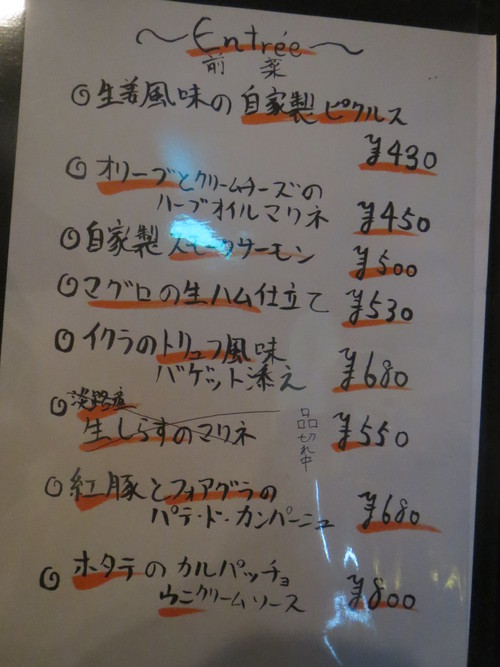 ～Entrée～
前菜
◎生姜風味の自家製ピクルス
¥430
◎オリーブとクリームチーズの
ハーブオイルマリネ ¥450
◎自家製スモークサーモン ¥500
◎マグロの生ハム仕立て ¥530
◎イクラのトリュフ風味
バゲット添え ¥680
◎淡路産
生しらすのマリネ 品切れ中 ¥550
◎紅豚とフォアグラの
パテ・ド・カンパーニュ ¥680
◎ホタテのカルパッチョ
ウニクリームソース ¥800